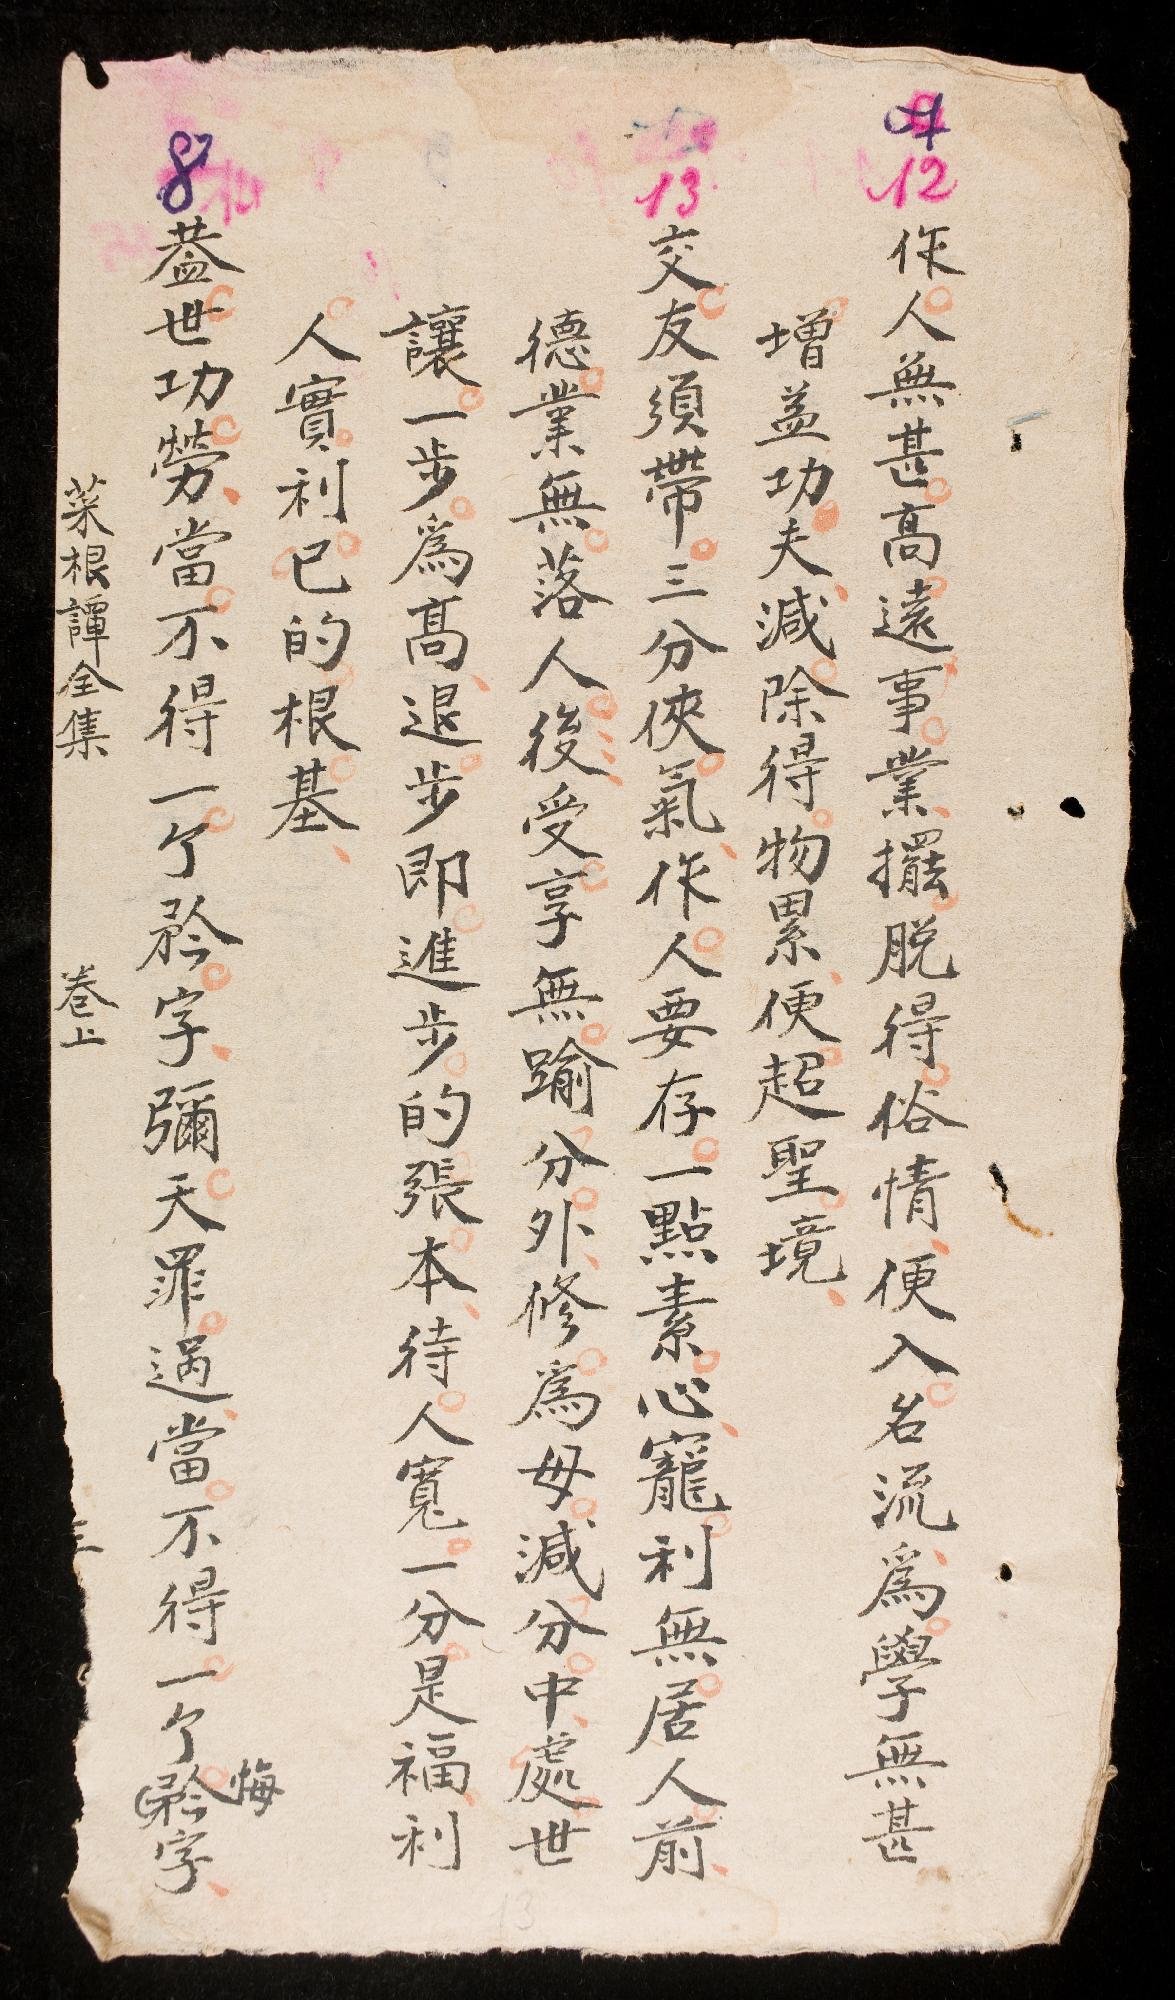 12
作人無甚高遠事業擺脱得俗情便入名流爲學無甚
增益功夫減除得物累便超聖境
13
交友須帶三分俠氣作人要存一點素心寵利無居人前
德業無落人後受享無踰分外修爲毋減分中處世
讓一步爲高退步即進步的張本待人寬一分是福利
人實利已的根基
8
葢世功勞當不得一个矜字彌天罪過當不得一个矜字
悔
菜根譚全集 卷上 三
13